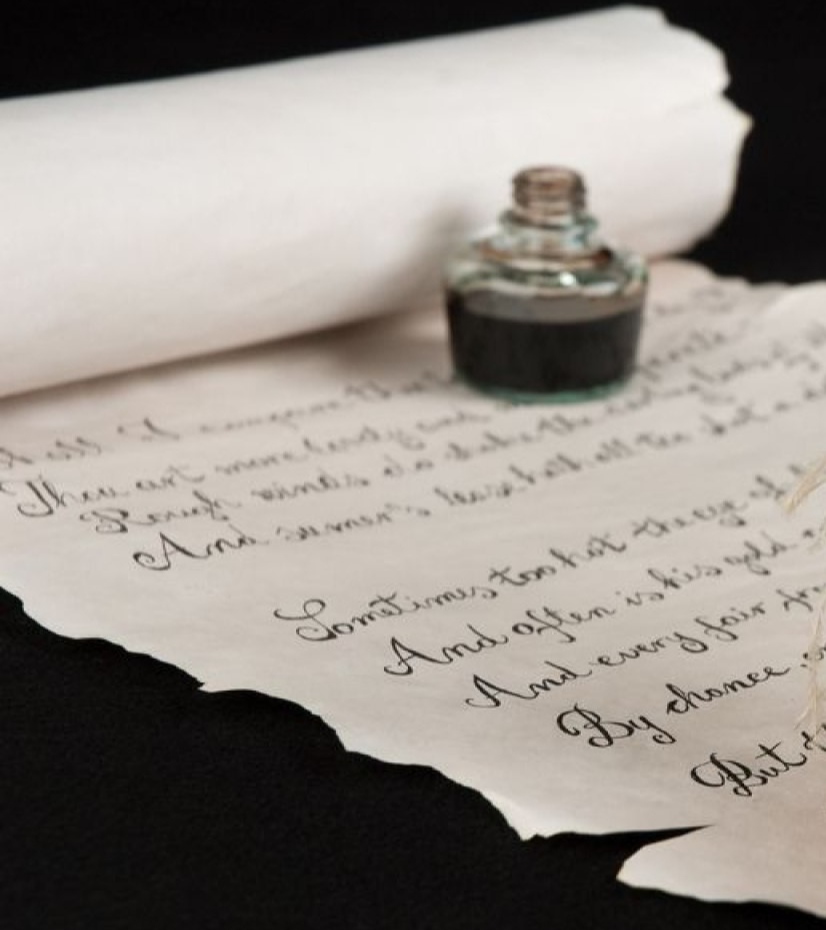 shall I compare the
Thou art more lovely and temperate
Rough winds do shake the darling buds of
And sumer's lease hath all too short a
Sometimes too hot the eye of
And often is his gold
And every fair
By chance
But